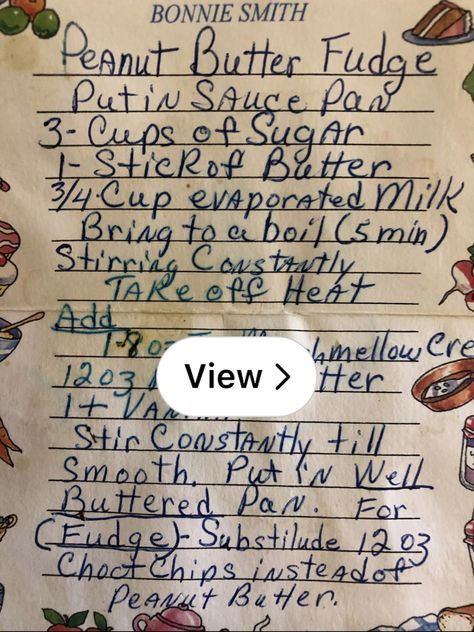 BONNIE SMITH
Peanut Butter Fudge
Put in Sauce Pan
3- Cups of Sugar
1- Stick of Butter
3/4 Cup evaporated Milk
Bring to a boil (5 min)
Stirring Constantly
Take off Heat
Add
1-8oz
12oz
View >
1t
Stir Constantly till
Smooth. Put in Well
Buttered Pan. For
(Fudge)- Substilude 12oz
Choct Chips instead of
Peanut Butter.